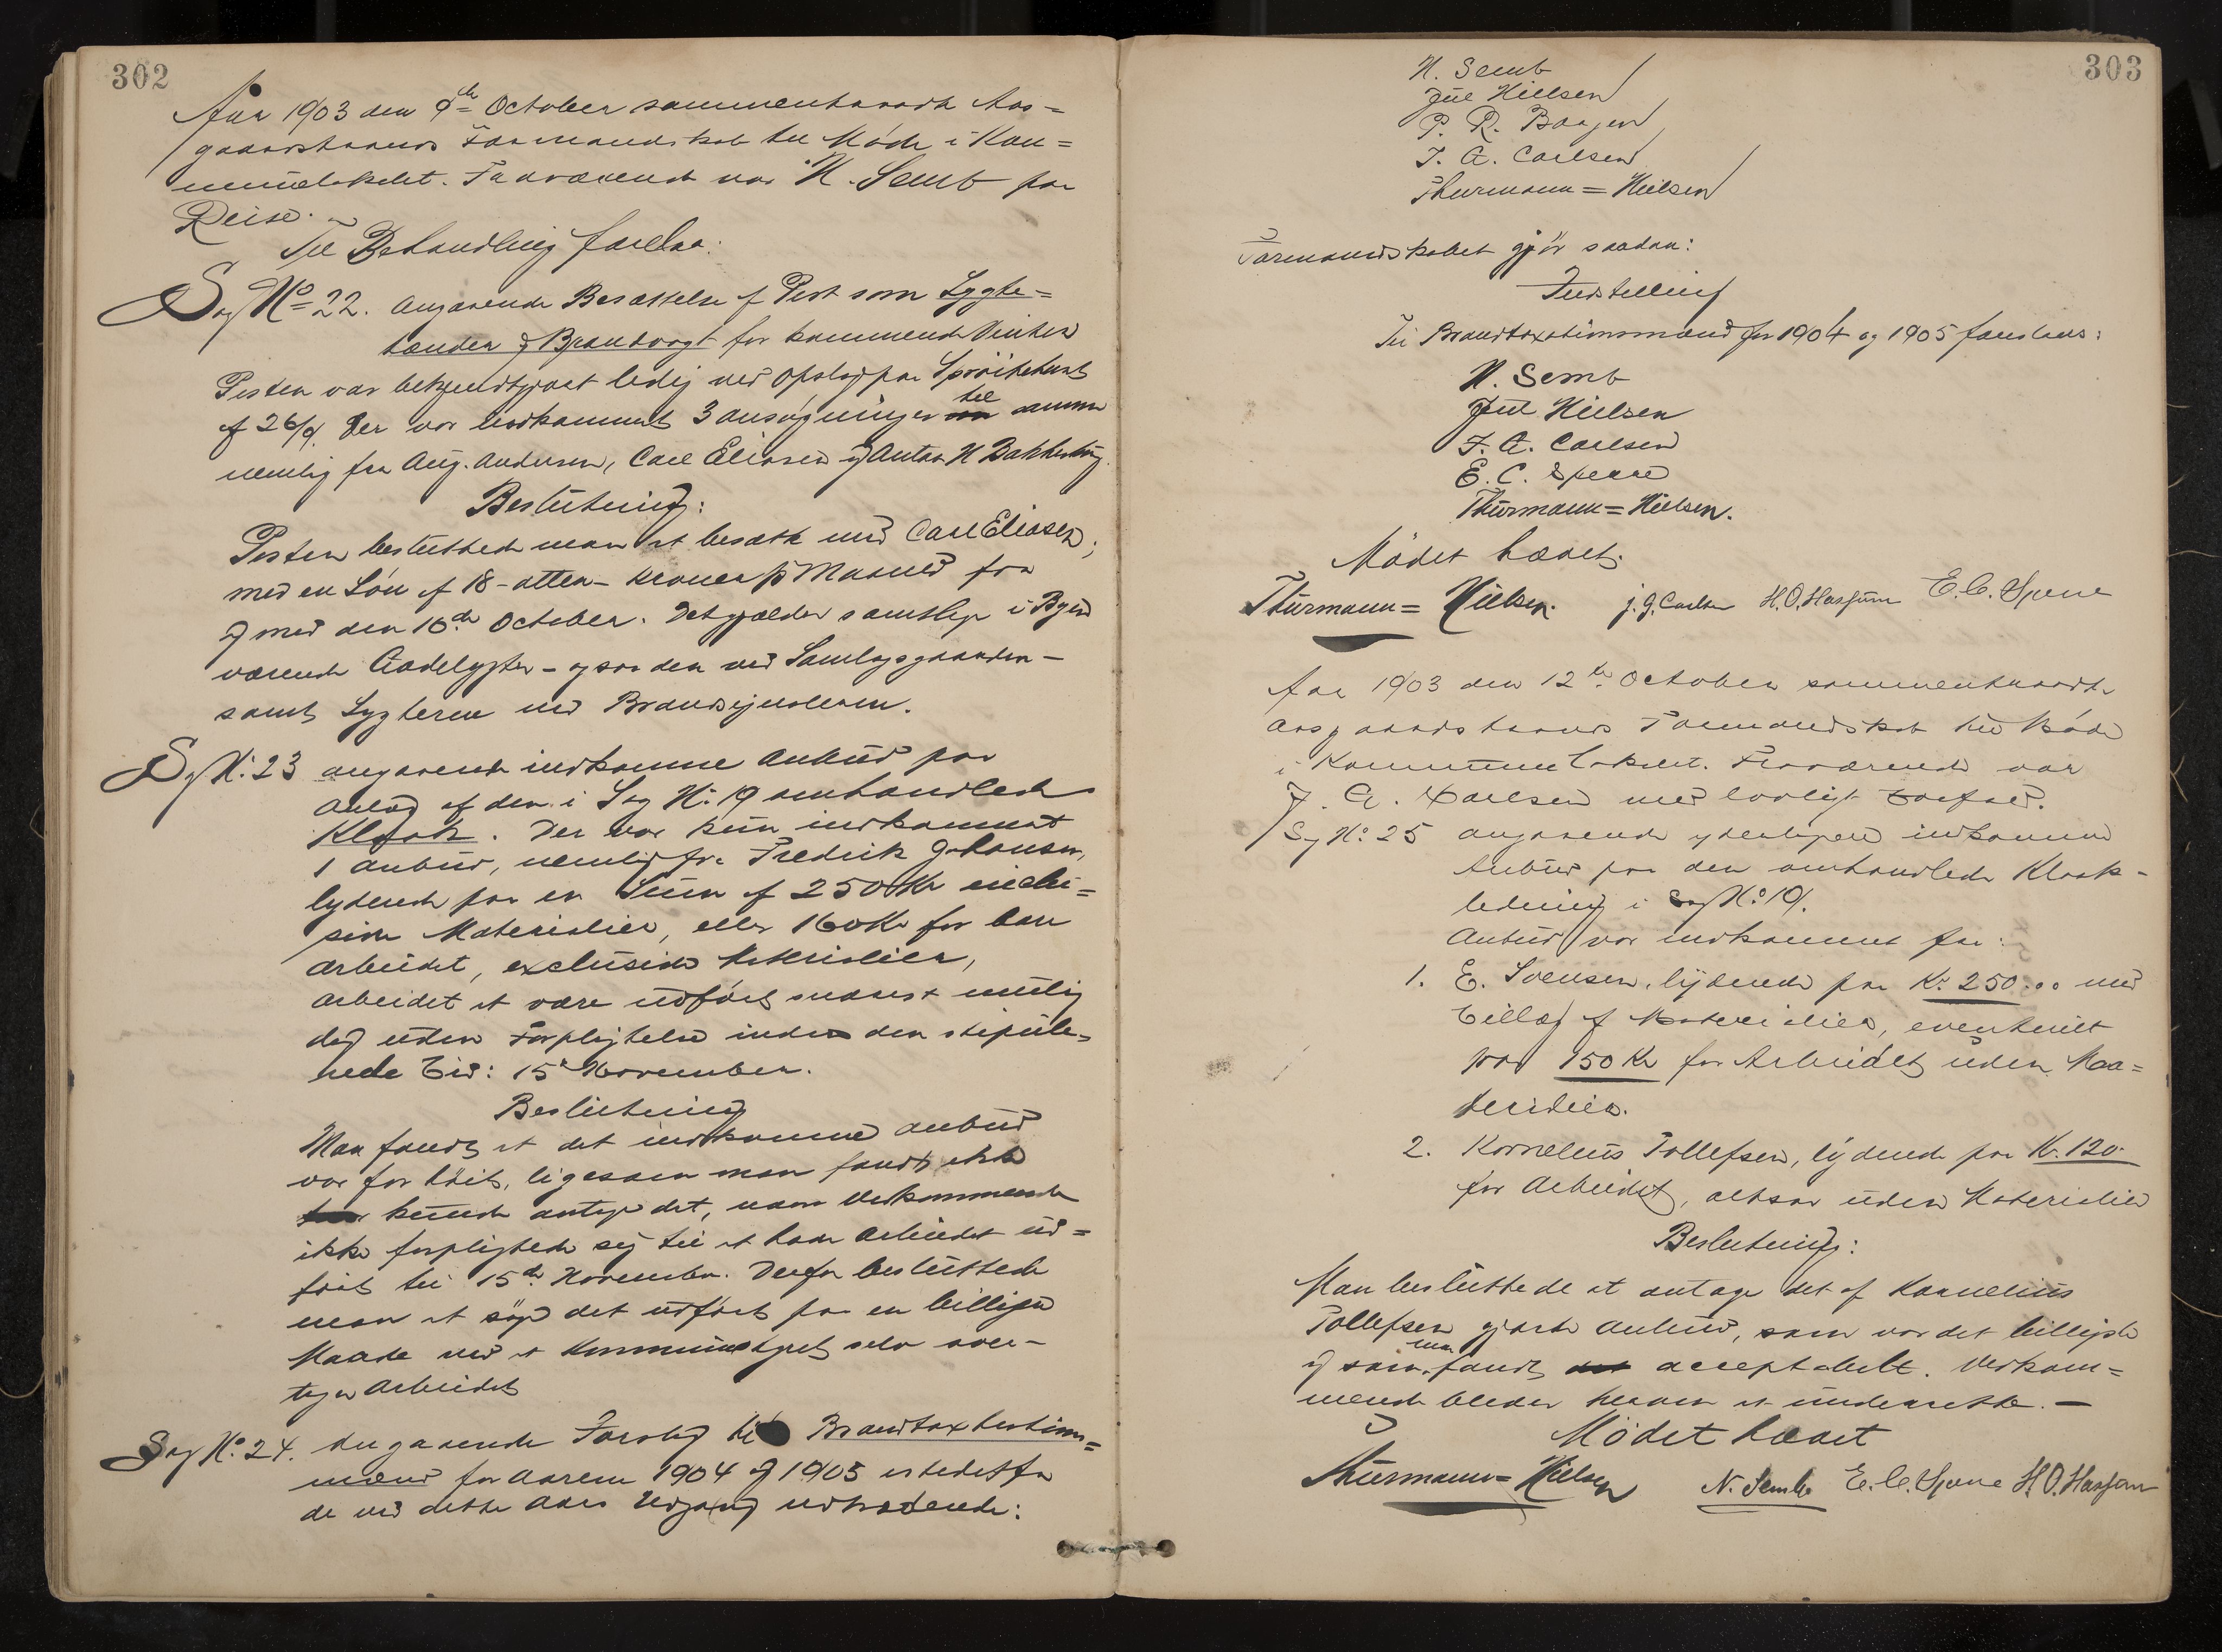 302
Aar 1903 den 9de October sammentraadte Aas=
gaardstrands Formandskab til Møde i Kom=
munelokalet. Fraværende var N. Semb paa
Reise.
Til Behandling forelaa:
Sag No 22. angaaende Besættelse af Post som Lygte=
tænder og Brandvagt for kommende Vinter
Posten var bekjendtgjort ledig ved Opslag paa Sprøitehuset
af 26/9. Der var indkommet 3 ansøgninger til samme
nemlig fra Aug. Andersen, Carl Eliasen og Anton H Bakke
Beslutning:
Posten besluttede man at besætte med Carl Eliasen,
med en Løn af 18-atten-Kroner pr Maaned fra
og med den 16de October. Det gjælder samtlige i Byen
værende Gadelygter - ogsaa den ved Samlagsgaarden -
samt Lygterne ved Brandsignalerne.
Sag No. 23 angaaende indkomne Anbud paa
Anlæg af den i Sag No. 19 omhandlede
Kloak. Der var kun indkommet
1 anbud, nemlig fra Fredrik Johansen,
lydende paa en Sum af 250 Kr inclu=
sive Materialier, eller 160 Kr for bare
Arbeidet, exclusive Materialier,
Arbeidet at være udført snarest mulig
dog uden Forpligtelse inden den stipule=
rede Tid: 15de November.
Beslutning
Man fandt at det indkomne anbud
var for høit, ligesom man fandt ikke
kunde antage det, naar Vedkommende
ikke forpligtede sig til at have Arbeidet ud=
ført til 15de November. Derfor besluttede
man at søge det udført paa en billigere
Maade ved at Kommunestyret selv over-
tager Arbeidet
Sag No. 24. Angaaende Forslag til Brandtaxtations=
mænd for Aarene 1904 og 1905 istedetfor
de ved dette Aars Udgang udtrædende:
303
N. Semb
Jul Nielsen
P. R. Baagen
J. A. Carlsen
Thurmann=Nielsen
Formandskabet gjør saadan:
Indstilling
Til Brandtaxationsmænd for 1904 og 1905 foreslaaes:
N. Semb
Jul Nielsen
J. A. Carlsen
E. C. Sperre
Thurmann=Nielsen.
Mødet hævet.
Thurmann=Nielsen. J. G. Carlsen H. O. Hasjum E. C. Sperre
Aar 1903 den 12te October sammentraadte
Aasgaardstrands Formandskab til Møde
i Kommunelokalet. Fraværende var
J. A. Carlsen med lovligt Forfald.
Sag No. 25 angaaende yderligere indkomne
Anbud paa den omhandlede Kloak-
ledning i Sag No. 19.
Anbud var indkommet fra:
1. E. Svensen, lydende paa Kr. 250.00 med
Tillæg af Materialier, eventuelt
paa 150 Kr for Arbeidet uden Maa=
terialier.
2. Kornelius Tollefsen, lydende paa Kr. 120.
for Arbeidet, altsaa uden Materialier
Beslutning:
Man besluttede at antage det af Kornelius
Tollefsen gjorte Anbud, som var det billigste
og som man fandt acceptabelt. Vedkom=
mende bliver herom at underrette. -
Mødet hævet
Thurmann=Nielsen N. Semb E. C. Sperre H. O. Hasjum